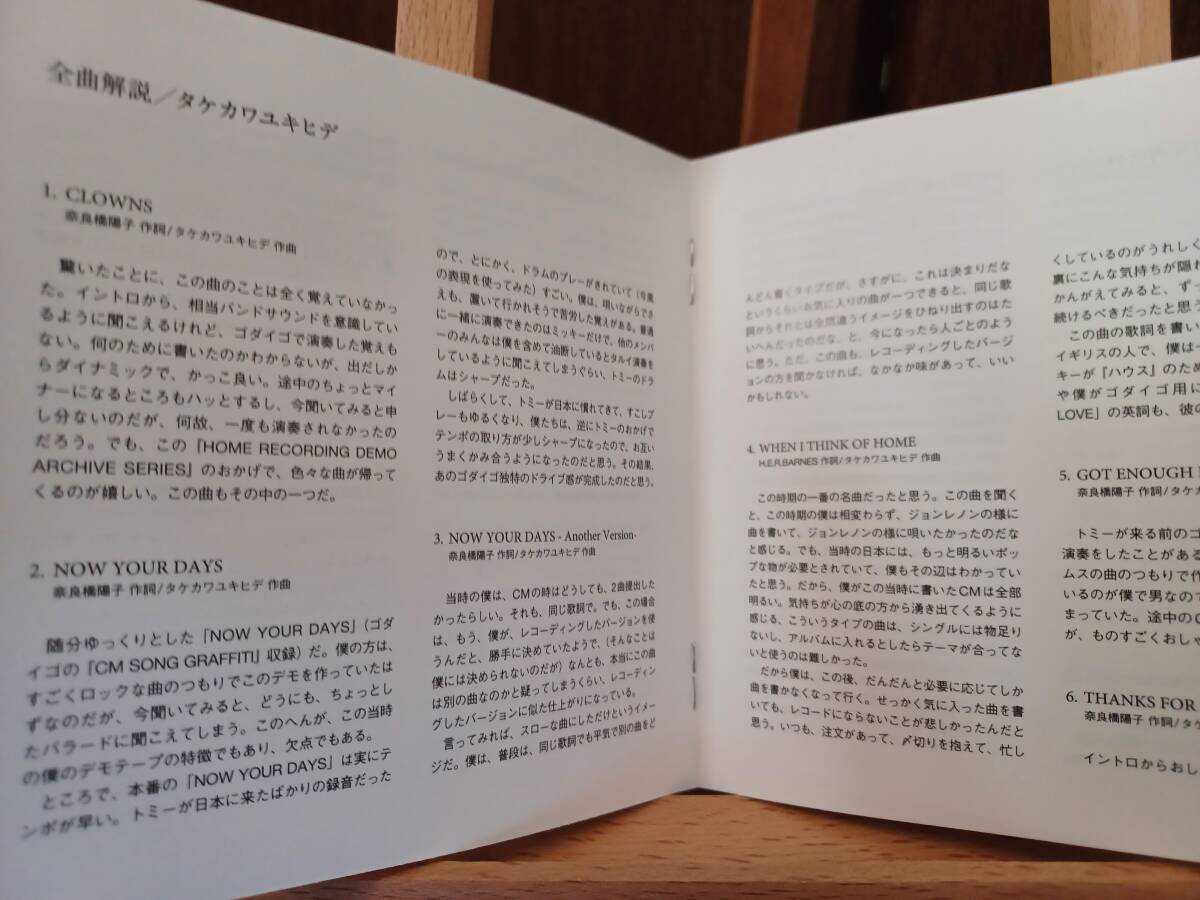 全曲解説／タケカワユキヒデ
1. CLOWNS
奈良橋陽子 作詞/タケカワユキヒデ 作曲
驚いたことに、この曲のことは全く覚えていなかっ
た。イントロから、相当バンドサウンドを意識してい
るように聞こえるけれど、ゴダイゴで演奏した覚えも
ない。何のために書いたのかわからないが、出だしか
らダイナミックで、かっこ良い。途中のちょっとマイ
ナーになるところもハッとするし、今聞いてみると申
し分ないのだが、何故、一度も演奏されなかったの
だろう。でも、この「HOME RECORDING DEMO
ARCHIVE SERIES」のおかげで、色々な曲が帰って
くるのが嬉しい。この曲もその中の一つだ。
2. NOW YOUR DAYS
奈良橋陽子 作詞/タケカワユキヒデ 作曲
随分ゆっくりとした「NOW YOUR DAYS」(ゴダ
イゴの『CM SONG GRAFFITI』収録）だ。僕の方は、
すごくロックな曲のつもりでこのデモを作っていたは
ずなのだが、今聞いてみると、どうにも、ちょっとし
たバラードに聞こえてしまう。このへんが、この当時
の僕のデモテープの特徴でもあり、欠点でもある。
ところで、本番の「NOW YOUR DAYS」は実にテ
ンポが早い。トミーが日本に来たばかりの録音だった
ので、とにかく、ドラムのプレーがきれていて（今風
の表現を使ってみた）すごい。僕は、唄いながらでさ
えも、置いて行かれそうで苦労した覚えがある。普通
に一緒に演奏できたのはミッキーだけで、他のメンバ
ーのみんなは僕を含めて油断しているとタルイ演奏を
しているように聞こえてしまうぐらい、トミーのドラ
ムはシャープだった。
しばらくして、トミーが日本に慣れてきて、すこしプ
レーもゆるくなり、僕たちは、逆にトミーのおかげで
テンポの取り方が少しシャープになったので、お互い
うまくかみ合うようになったのだと思う。その結果、
あのゴダイゴ独特のドライブ感が完成したのだと思う。
3. NOW YOUR DAYS - Another Version-
奈良橋陽子 作詞/タケカワユキヒデ 作曲
当時の僕は、CMの時はどうしても、2曲提出した
かったらしい。それも、同じ歌詞で。でも、この場合
は、もう、僕が、レコーディングしたバージョンを使
うんだと、勝手に決めていたようで、（そんなことは
僕には決められないのだが）なんとも、本当にこの曲
は別の曲なのかと疑ってしまうくらい、レコーディン
グしたバージョンに似た仕上がりになっている。
言ってみれば、スローな曲にしただけというイメー
ジだ。僕は、普段は、同じ歌詞でも平気で別の曲をど
んどん書くタイプだが、さすがに、これは決まりだな
というくらいお気に入りの曲が一つできると、同じ歌
詞からそれとは全然違うイメージをひねり出すのはた
いへんだったのだな、と、今になったら人ごとのよう
に思う。ただ、この曲も、レコーディングしたバージ
ョンの方を聞かなければ、なかなか味があって、いい
かもしれない。
4. WHEN I THINK OF HOME
H.E.R.BARNES 作詞/タケカワユキヒデ 作曲
この時期の一番の名曲だったと思う。この曲を聞く
と、この時期の僕は相変わらず、ジョンレノンの様に
曲を書いて、ジョンレノンの様に唄いたかったのだな
と感じる。でも、当時の日本には、もっと明るいポッ
プな物が必要とされていて、僕もその辺はわかってい
たと思う。だから、僕がこの当時に書いたCMは全部
明るい。気持ちが心の底の方から湧き出てくるように
感じる、こういうタイプの曲は、シングルには物足り
ないし、アルバムに入れるとしたらテーマが合ってな
いと使うのは難しかった。
だから僕は、この後、だんだんと必要に応じてしか
曲を書かなくなって行く。せっかく気に入った曲を書
いても、レコードにならないことが悲しかったんだと
思う。いつも、注文があって、〆切りを抱えて、忙し
くしているのがうれしく
裏にこんな気持ちが隠れ
かんがえてみると、ずっ
続けるべきだったと思う
この曲の歌詞を書い
イギリスの人で、僕は
キーが『ハウス』のため
や僕がゴダイゴ用に
LOVE」の英詞も、彼の
5. GOT ENOUGH
奈良橋陽子 作詞/タケカワ
トミーが来る前のゴ
演奏をしたことがある
ムスの曲のつもりで作
いるのが僕で男なので
まっていた。途中の
が、ものすごくおしゃ
6. THANKS FOR
奈良橋陽子 作詞/タケ
イントロからおし